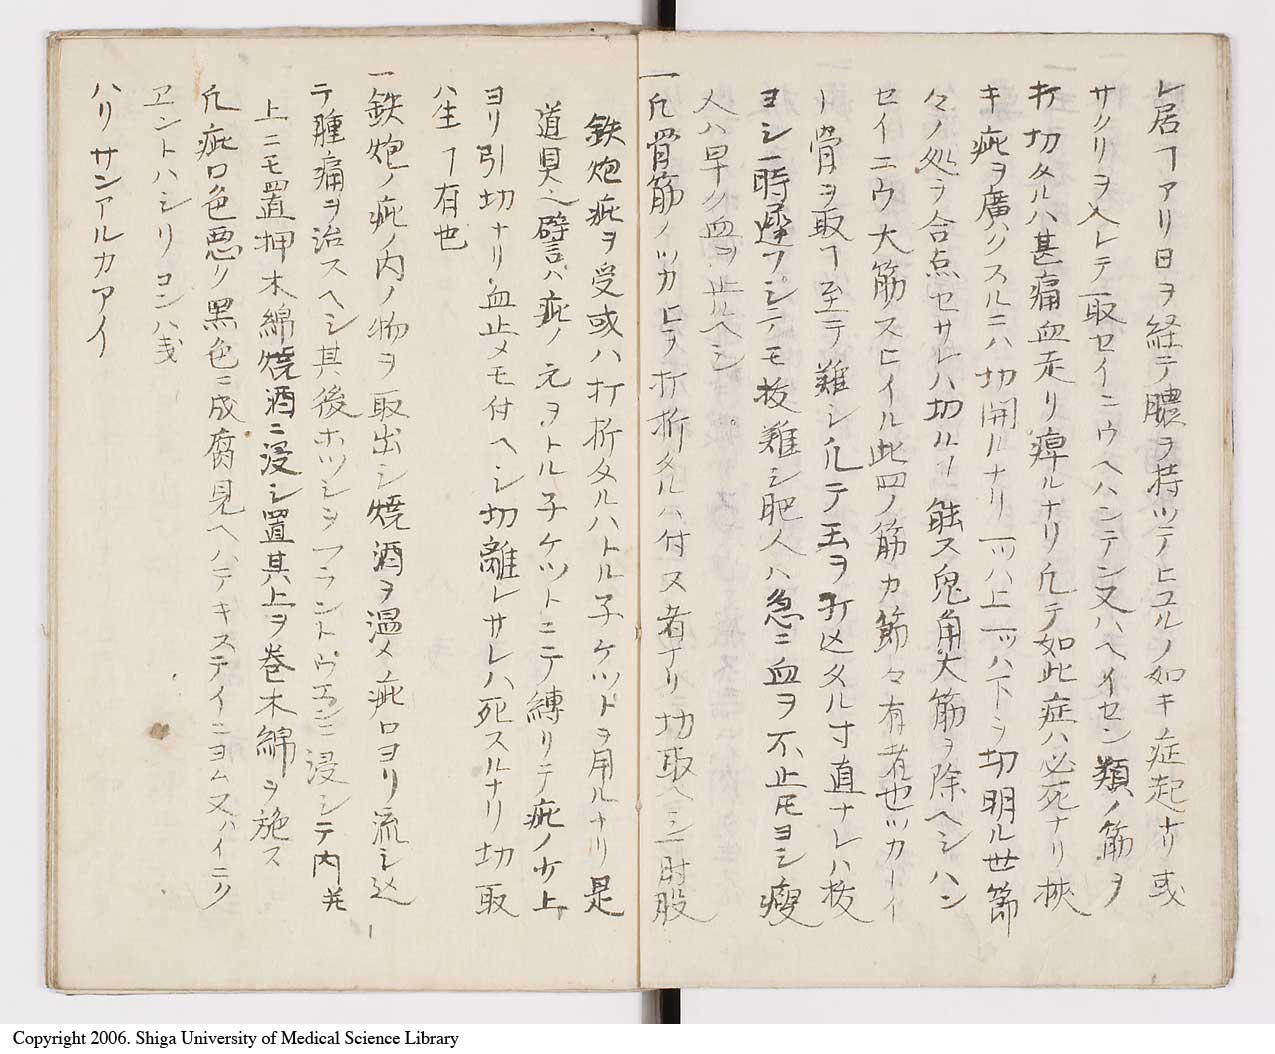 レ居ヿアリ日ヲ経テ膿ヲ持ツテヒユルノ如キ症起ナリ或
サクリヲ入レテ取セイニウヘハンテン又ハヘイセン類ノ筋ヲ
打切タルハ甚痛血走リ痺ルナリ凢テ如此症ハ必死ナリ挾
キ疵ヲ廣クスルニハ切開ルナリ一ツハ上一ツハ下ヲ切明ル世節
々ノ処ヲ合点セサレハ切ルヿ能ス鬼角大筋ヲ除ヘシハン
セイニウ大筋スヒイル此四ノ筋カ節々有者也ツカーイ
ト骨ヲ取ヿ至テ難シ凢テ玉ヲ打込タル寸直ナレハ抜
ヨシ一時違フシテモ抜難シ肥人ハ急ニ血ヲ不止モヨシ瘦
人ハ早ク血ヲ止ルヘシ
一凢骨筋ノツカヒヲ打折タルハ付ヌ者ナリ切取ヘシ一肘股
鉄炮疵ヲ受或ハ打折タルハトル子ケツトヲ用ルナリ是
道具ヘ譬ハ疵ノ元ヲトル子ケツトニテ縛リテ疵ノ少上
ヨリ引切ナリ血止メモ付ヘシ切離レサレハ死スルナリ切取
ハ生ヿ有也
一鉄炮ノ疵ノ内ノ物ヲ取出シ焼酒ヲ温メ疵口ヨリ流シ込
テ腫痛ヲ治スヘシ其後ホツシヲフラントウエンニ浸シテ内并
上ニモ置押木綿焼酒ニ浸シ置其上ヲ巻木綿ヲ施ス
凢疵口色悪ク黒色ニ成腐見ヘハテキステイニヨム又ハイニク
ヱントハシリコンハ或
ハリサンアルカアイ
Copyright 2006. Shiga University of Medical Science Library